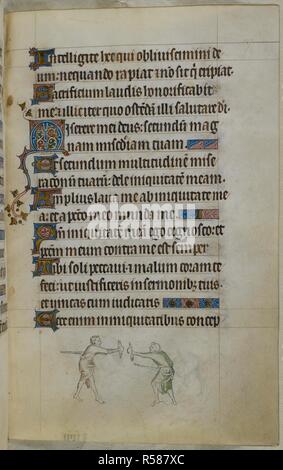 Intelligite hec qui obliviscimini de
um: nequando rapiat & nō sit q̇ eripiat.
Sacrificium laudis honorificabit
me: & illic iter quo ostendā illi salutare di
Miserere mei deus: secundum mag
nam misericordiam tuam
Et secundum multitudinem mise
rationū tuarū: dele iniquitatē meam.
Amplius lava me ab iniquitate me
a: et a peccato meo munda me.
Qm̄ iniquitatē meā ego cognosco: et
peccatum meum contra me est semper
Tibi soli peccavi & malum coram te
feci: ut iustificeris in sermonibꝫ tuis
et vincas cum iudicaris
Ecce enim in iniquitatibus concep
alamy
Image ID: R587XC
www.alamy.com